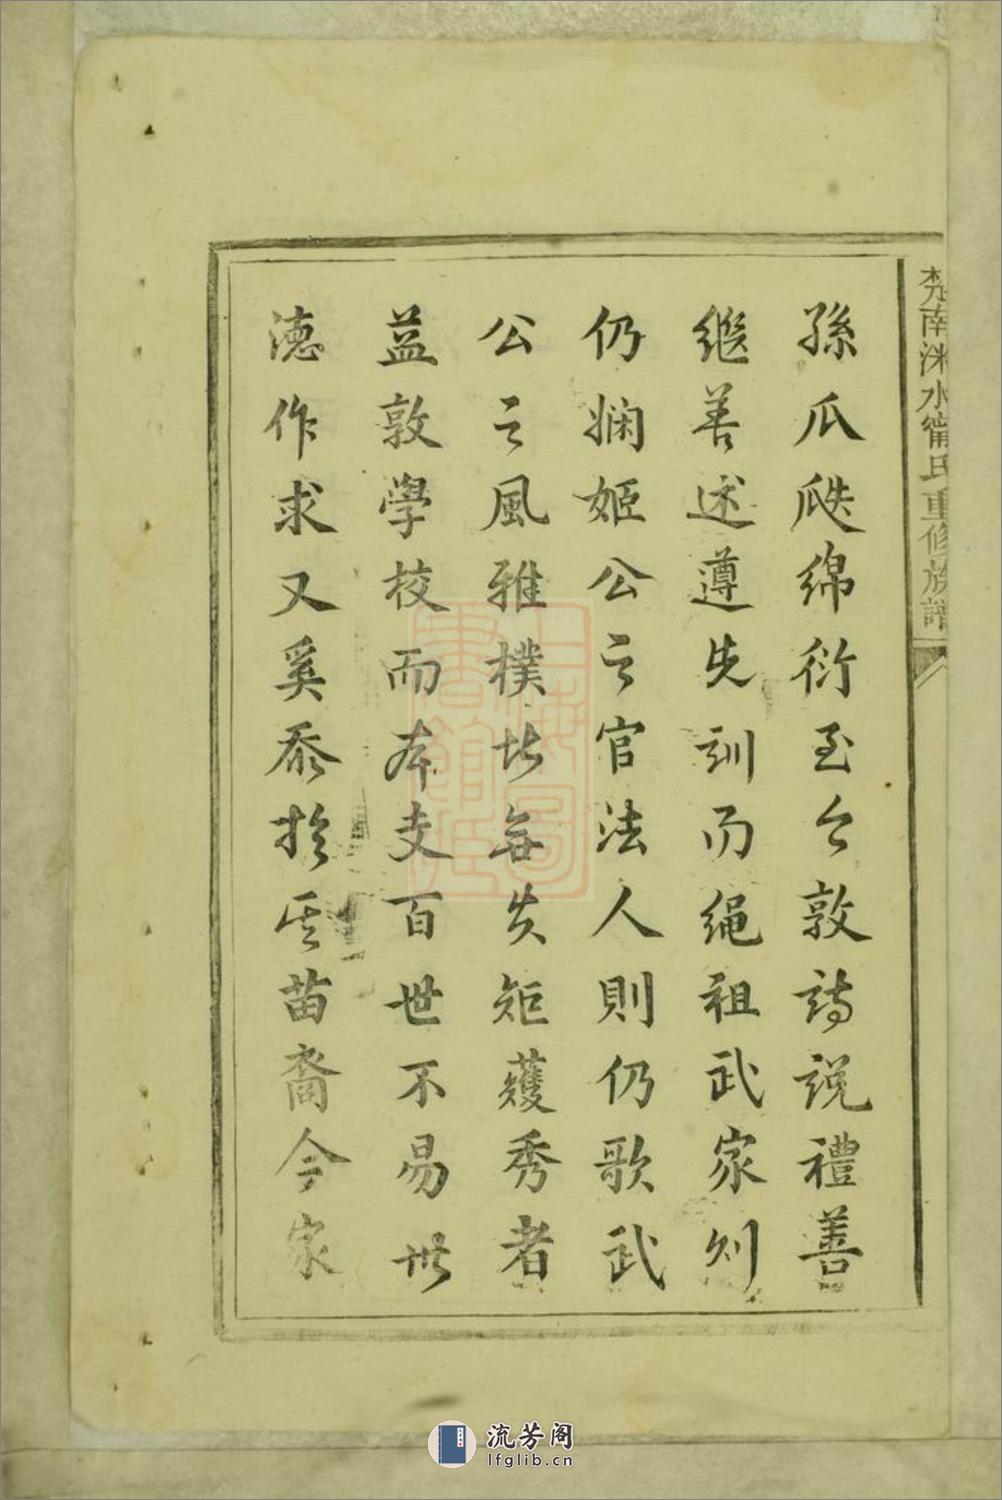 孫瓜瓞綿衍至今敦詩說禮善
繼善述遵先訓而繩祖武家則
仍嫻姬公之官法人則仍歌武
公之風雅樸皆無失矩蒦秀者
益敦學校而本支百世不易世
德作求又奚忝於雲苗裔今家
南洣水甯氏重修族譜
上海圖書館藏
流芳阁
lfglib.cn